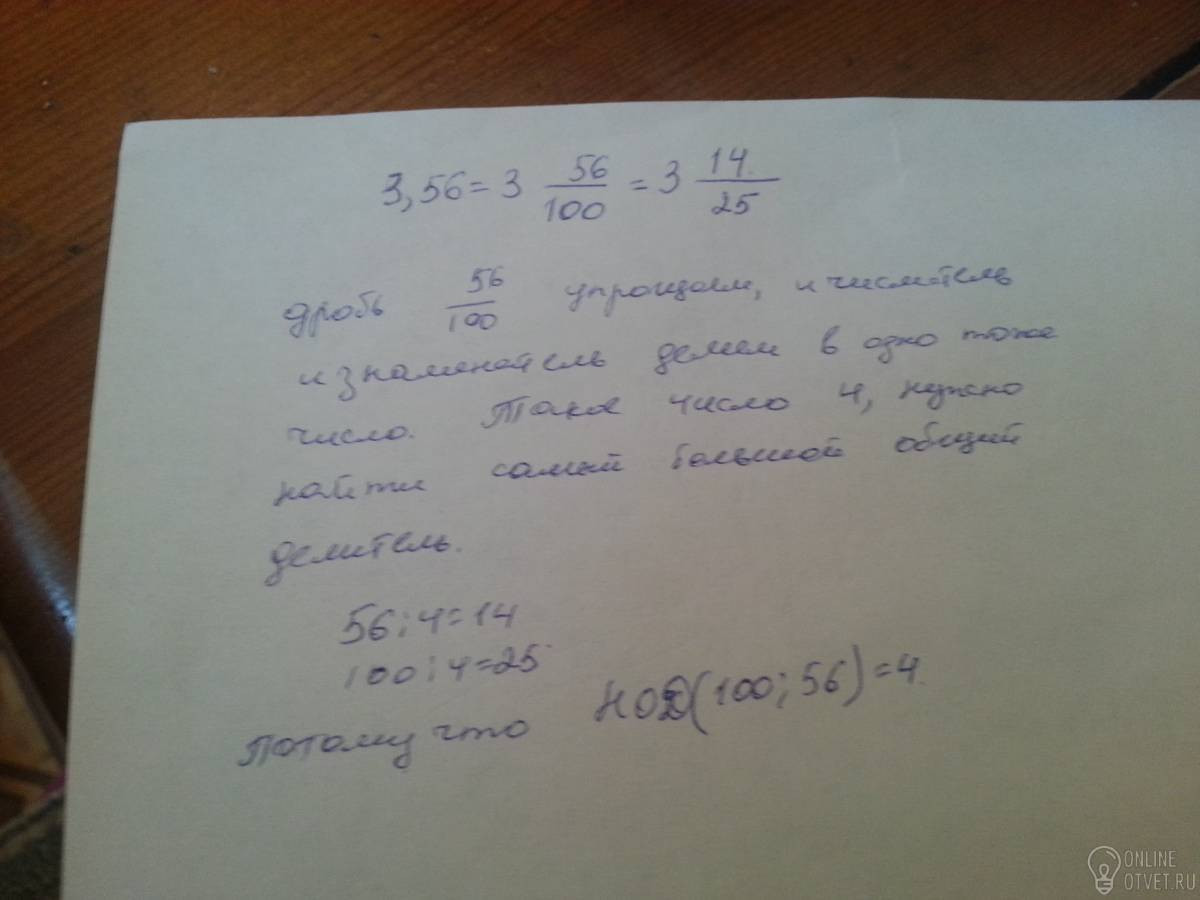 3,56 = 3 56/100 = 3 14/25
дробь 56/100 упрощаем, и числитель
и знаменатель делем в одно тоже
число. Такое число 4, нужно
найти самый большой общий
делитель.
56 : 4 = 14
100 : 4 = 25
Потому что НОД(100; 56) = 4.
ONLINE
OTVET.RU